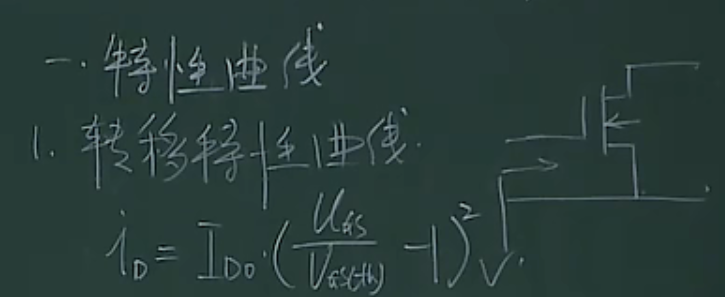 一.特性曲线
1.转移特性曲线.
i_D = I_{D0}·(\frac{U_{GS}}{V_{GS(th)}} - 1)^2